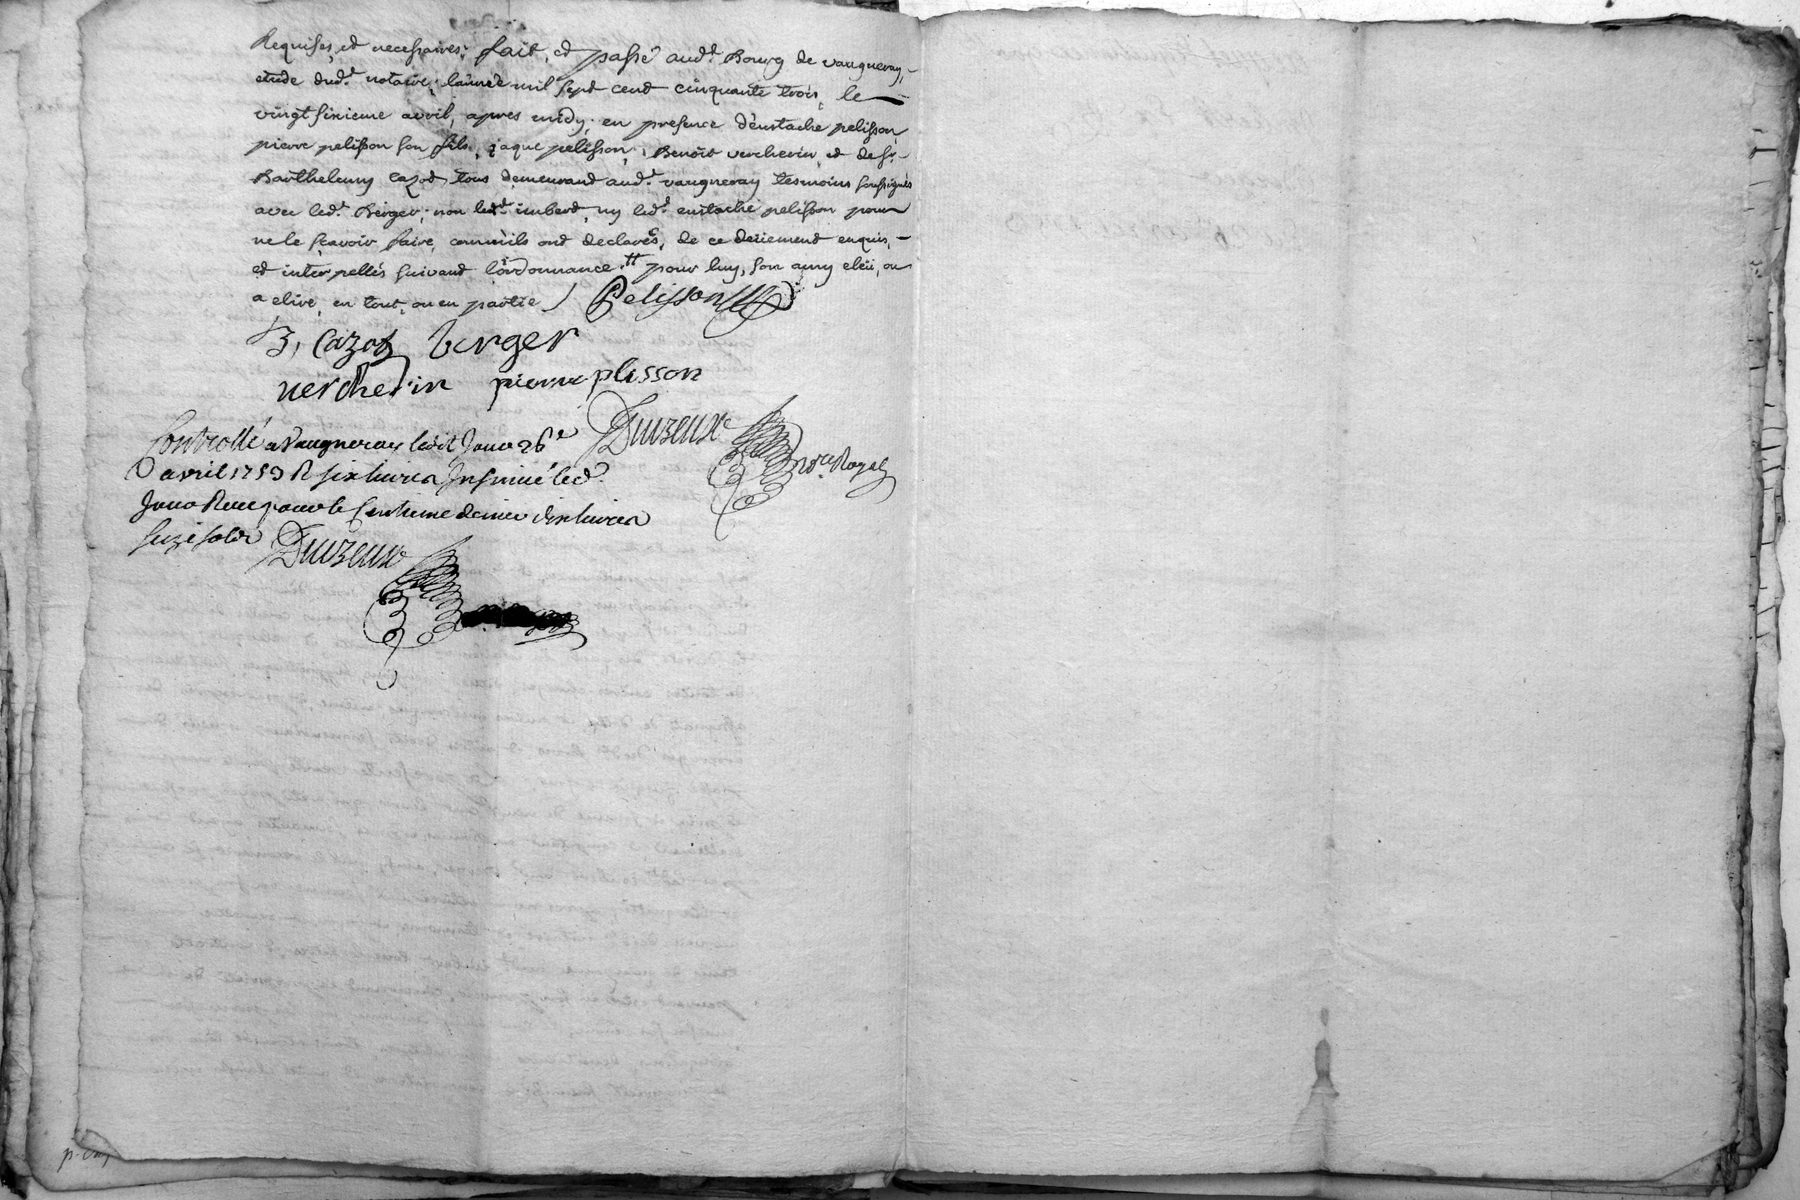 Requises, et necessaires; fait, et passé aud.t Bourg de vaugneray,
etude dud.t notaire; l'année mil sept cent cinquante trois, le
vingt sixieme avril, apres midy; en presence d'eustache pelisson,
pierre pelisson son fils, jaque pelisson, Benoit vercherin, et de sr.
Barthelemy cazot tous demeurand aud.t vaugneray tesmoins soussignés
avec led.t Berger; non led.t imberd, ny led.t eustache pelisson pour
ne le sçavoir faire, comm'ils ont declarés, de ce deüement enquis,
et interpellés suivand l'ordonnance. # pour luy, son amy eleü, ou
a elire, en tout, ou en partie / Pelisson
B, Cazot berger
vercherin pierre plisson
Controllé a Vaugneray ledit jour 26e
avril 1753 R six livres Insinué led.
jour Receu pour le Centieme denier dix livres
seize sols
Duvzeux
n.re Royal
Duvzeux